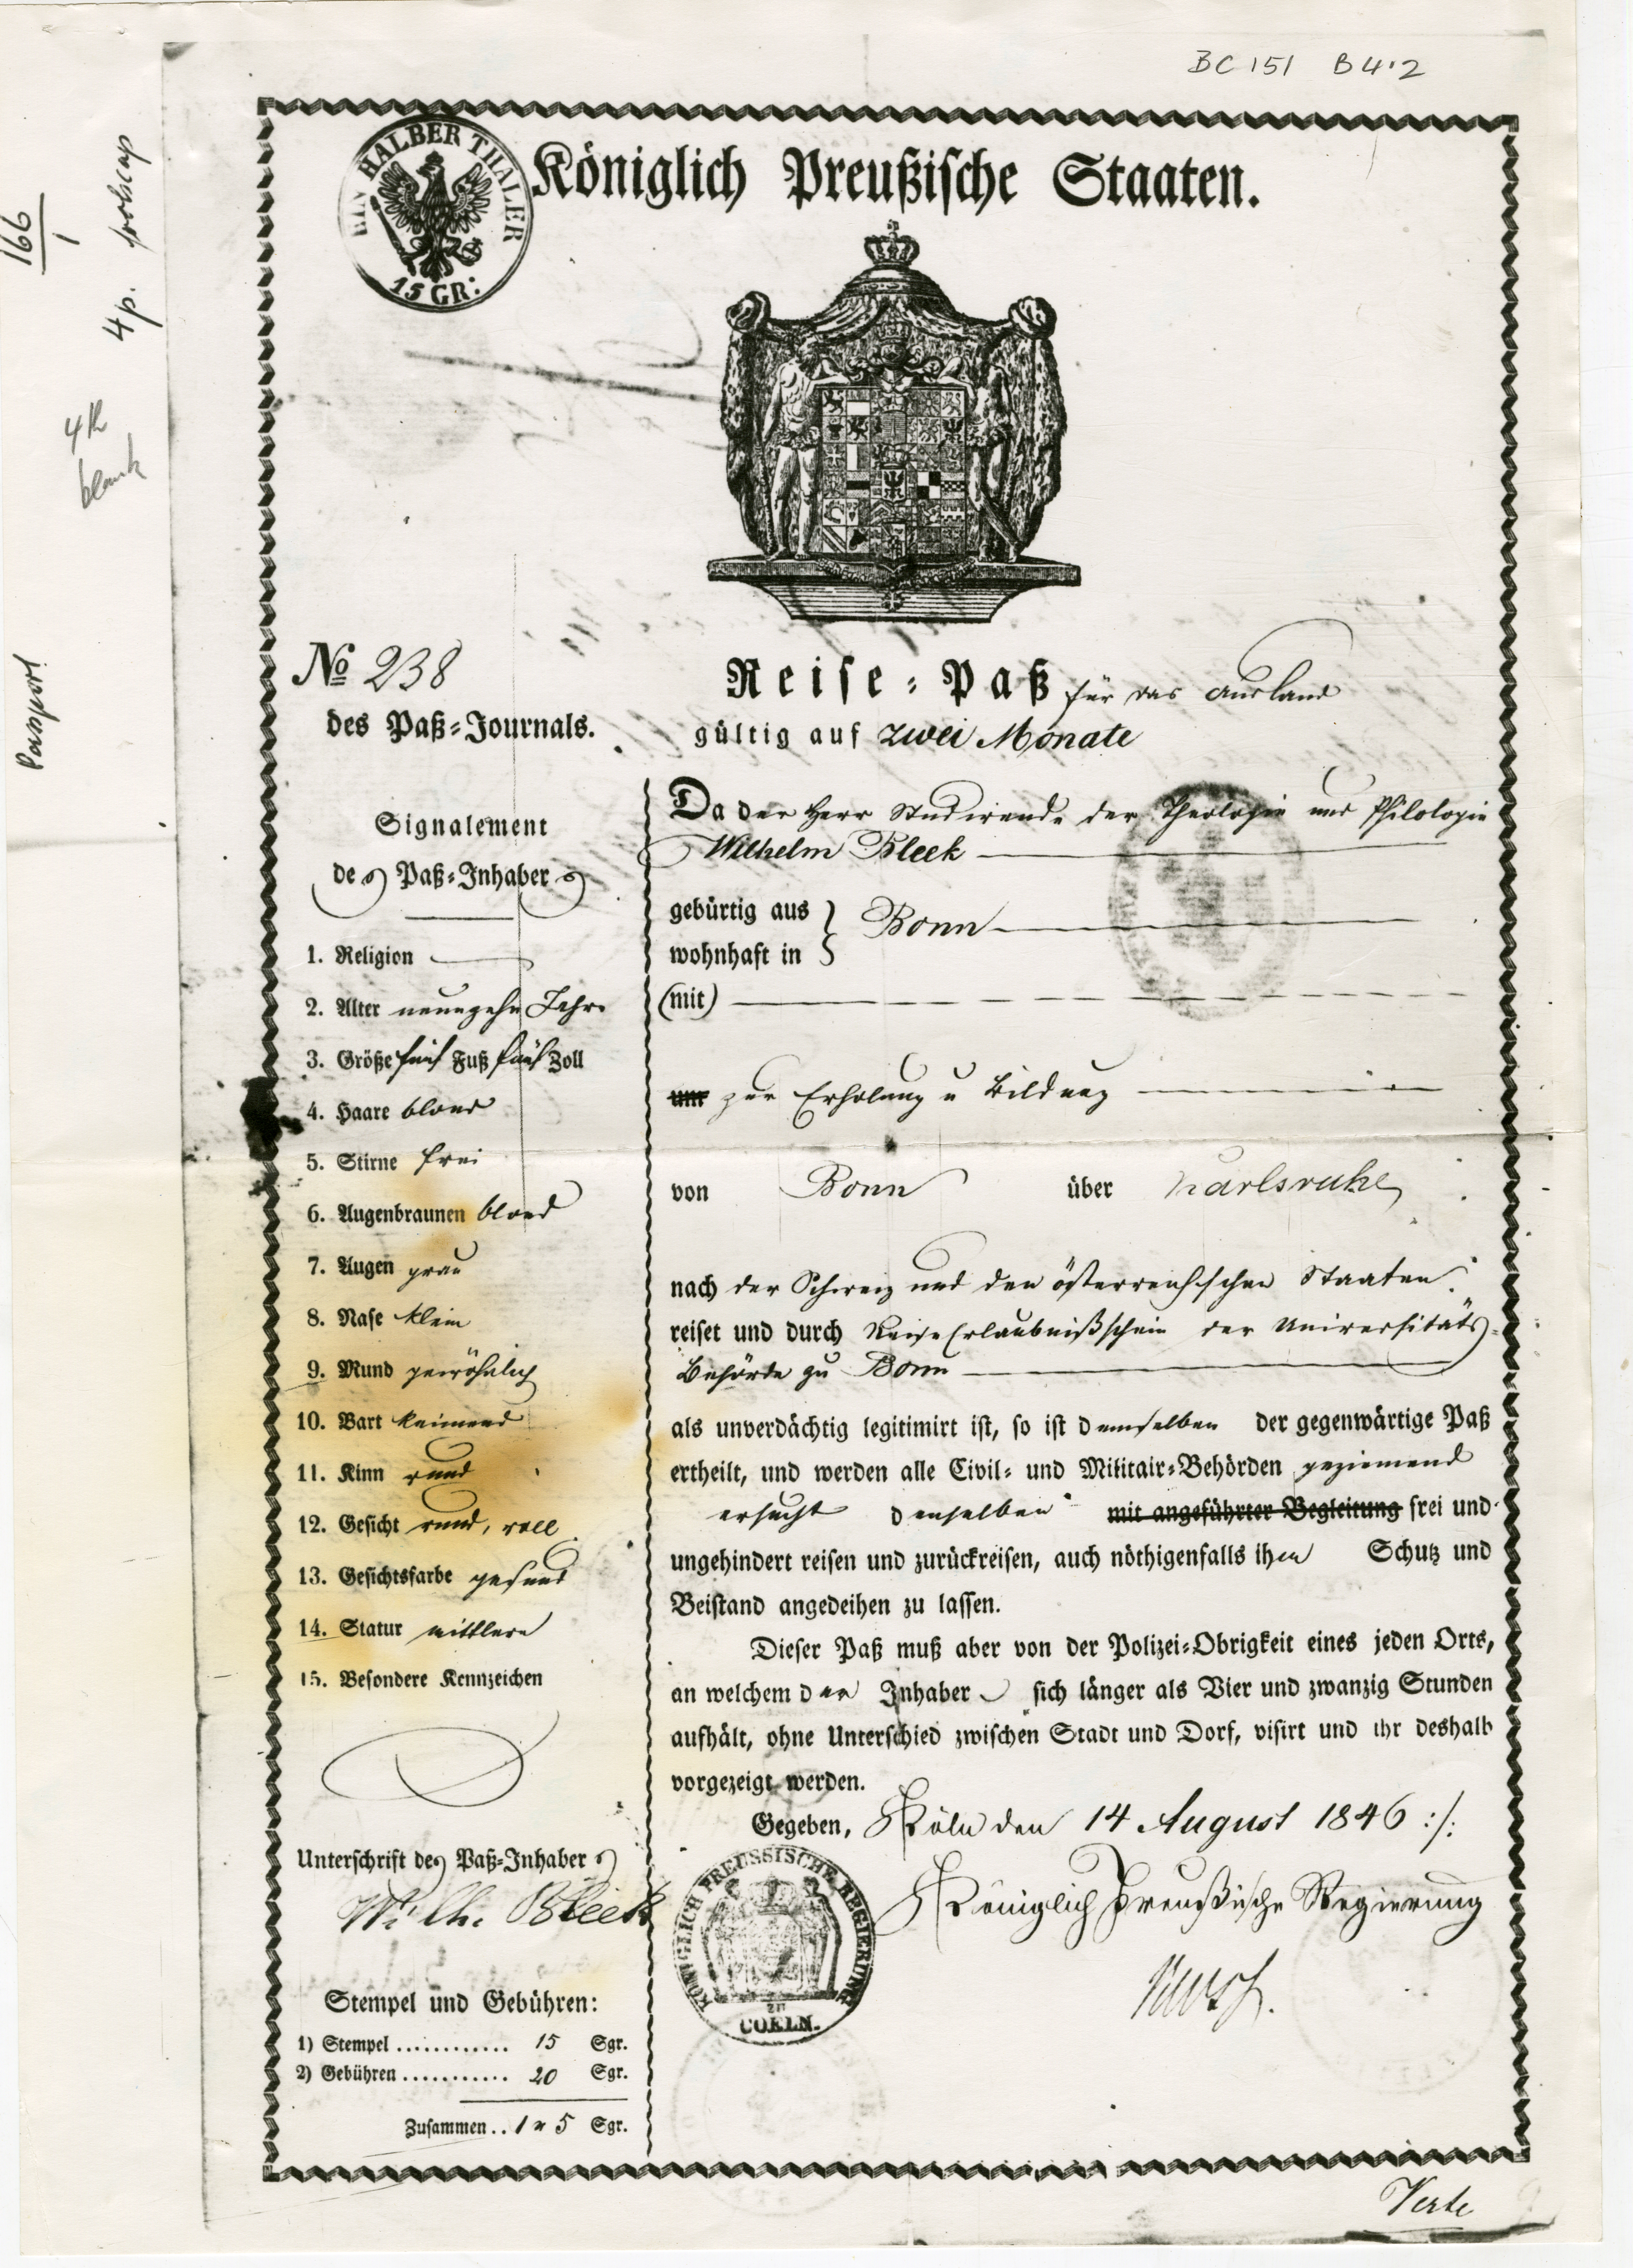 BC 151 B4.2
166
1
4p. foolscap
4th
blank
Passport
EIN HALBER THALER
15 GR:
Königlich Preußische Staaten.
No 238
des Paß-Journals.
Reise-Paß für das Ausland
gültig auf zwei Monate
Signalement
des Paß-Inhabers
1. Religion
2. Alter neunzehn Jahre
3. Größe fünf Fuß fünf Zoll
4. Haare blond
5. Stirne frei
6. Augenbraunen blond
7. Augen grau
8. Nase klein
9. Mund gewöhnlich
10. Bart keimend
11. Kinn rund
12. Gesicht rund, voll
13. Gesichtsfarbe gesund
14. Statur mittlere
15. Besondere Kennzeichen
Unterschrift des Paß-Inhabers
Wilh. Bleek
Stempel und Gebühren:
1) Stempel ............ 15 Sgr.
2) Gebühren ........... 20 Sgr.
Zusammen .. 1 " 5 Sgr.
Da der Herr Studirende der Theologie und Philologie
Wilhelm Bleek
gebürtig aus } Bonn
wohnhaft in
(mit)
um zur Erholung u Bildung
von Bonn über Karlsruhe
nach der Schweiz und den österreichischen Staaten
reiset und durch Reise Erlaubnißschein der Universitäts-
Behörde zu Bonn
als unverdächtig legitimirt ist, so ist demselben der gegenwärtige Paß
ertheilt, und werden alle Civil- und Militair-Behörden geziemend
ersucht denselben mit angeführter Begleitung frei und
ungehindert reisen und zurückreisen, auch nöthigenfalls ihm Schutz und
Beistand angedeihen zu lassen.
Dieser Paß muß aber von der Polizei-Obrigkeit eines jeden Orts,
an welchem der Inhaber sich länger als Vier und zwanzig Stunden
aufhält, ohne Unterschied zwischen Stadt und Dorf, visirt und ihr deshalb
vorgezeigt werden.
Gegeben, Köln den 14 August 1846 :/:
Königlich Preußische Regierung
KÖNIGLICH PREUSSISCHE REGIERUNG
ZU
COELN.
Verte